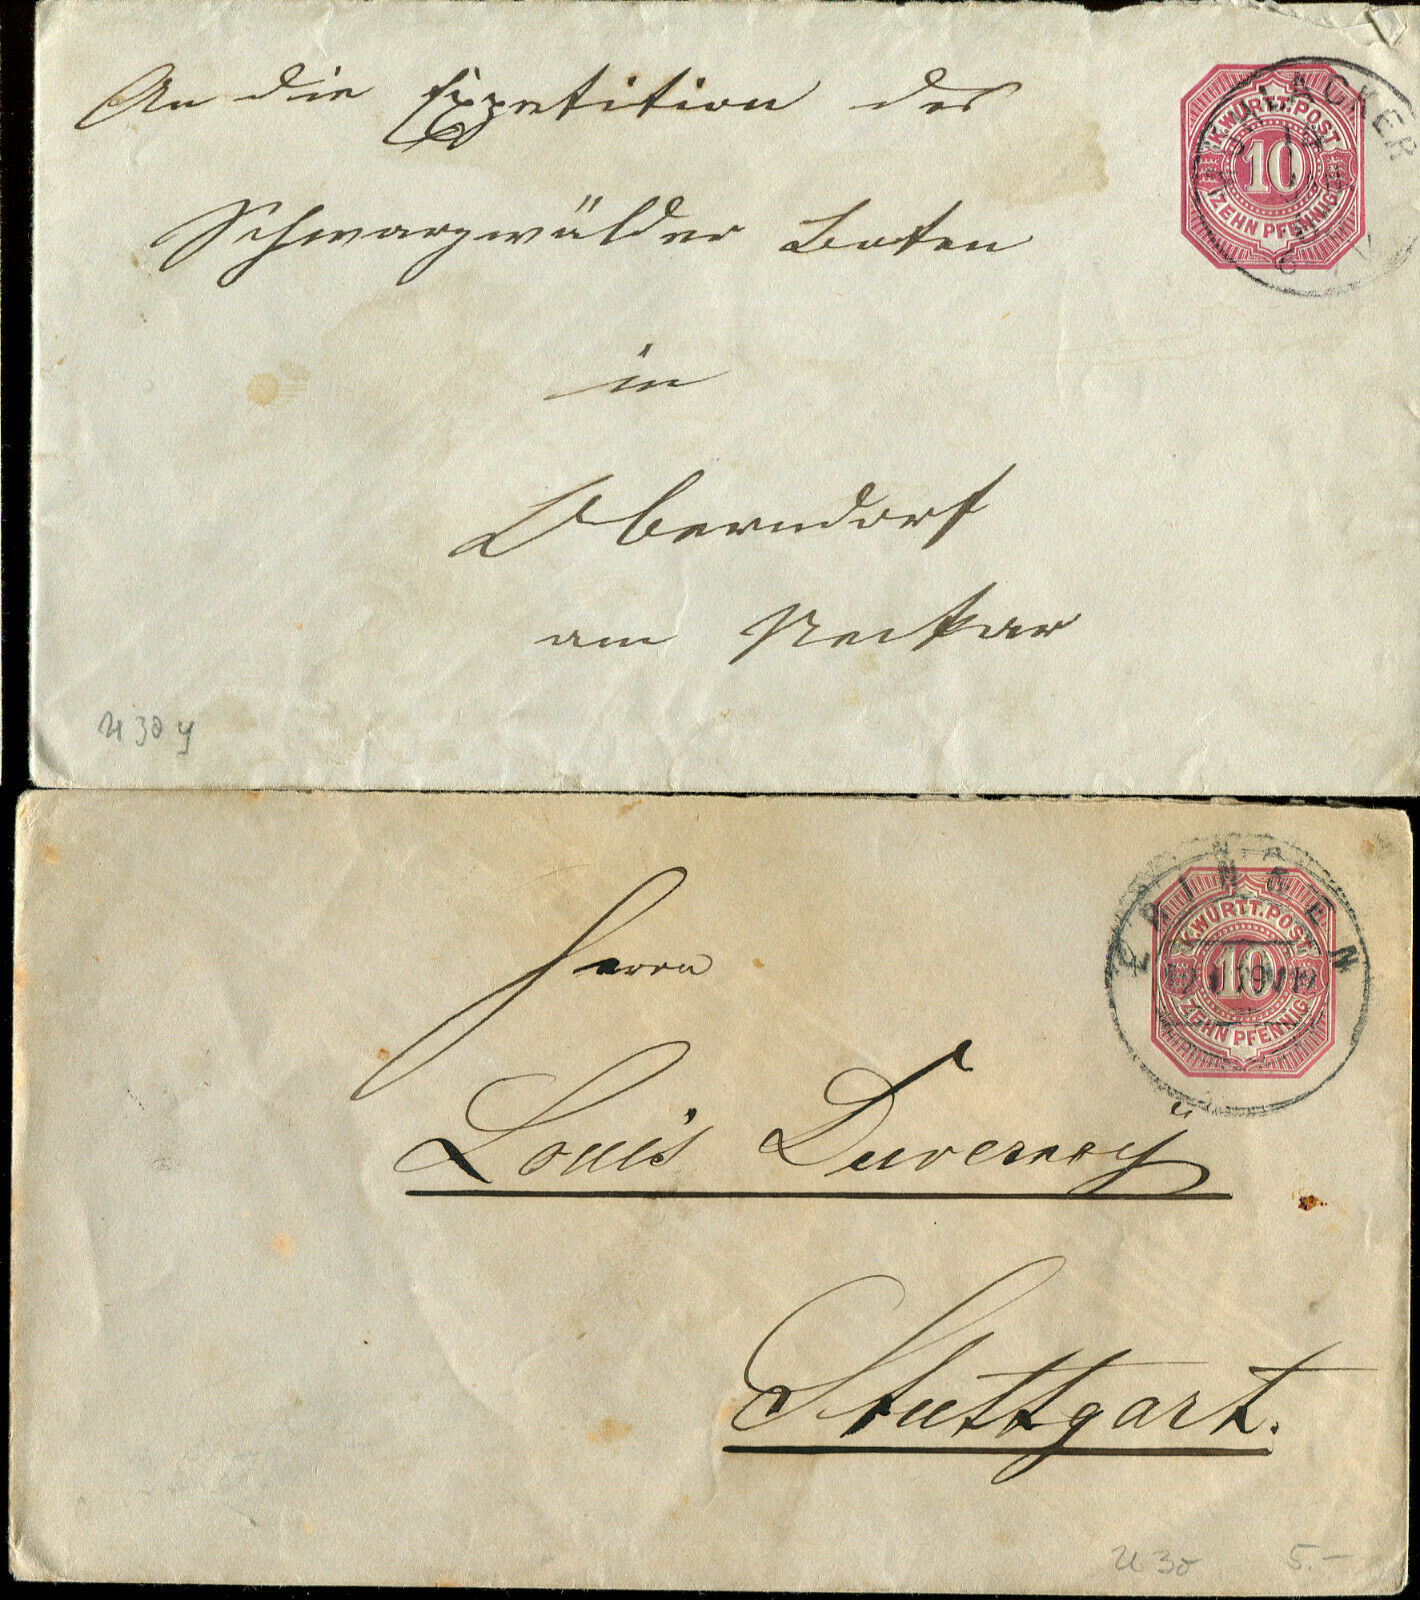 An die Expetition des
Schwarzwälder Boten
in
Oberndorf
am Neckar
K.WÜRTT.POST
10
ZEHN PFENNIG
MÜHLACKER
U 30 y
Herrn
Louis Duvernoÿ
Stuttgart.
K.WÜRTT.POST
10
ZEHN PFENNIG
U 30
5.-